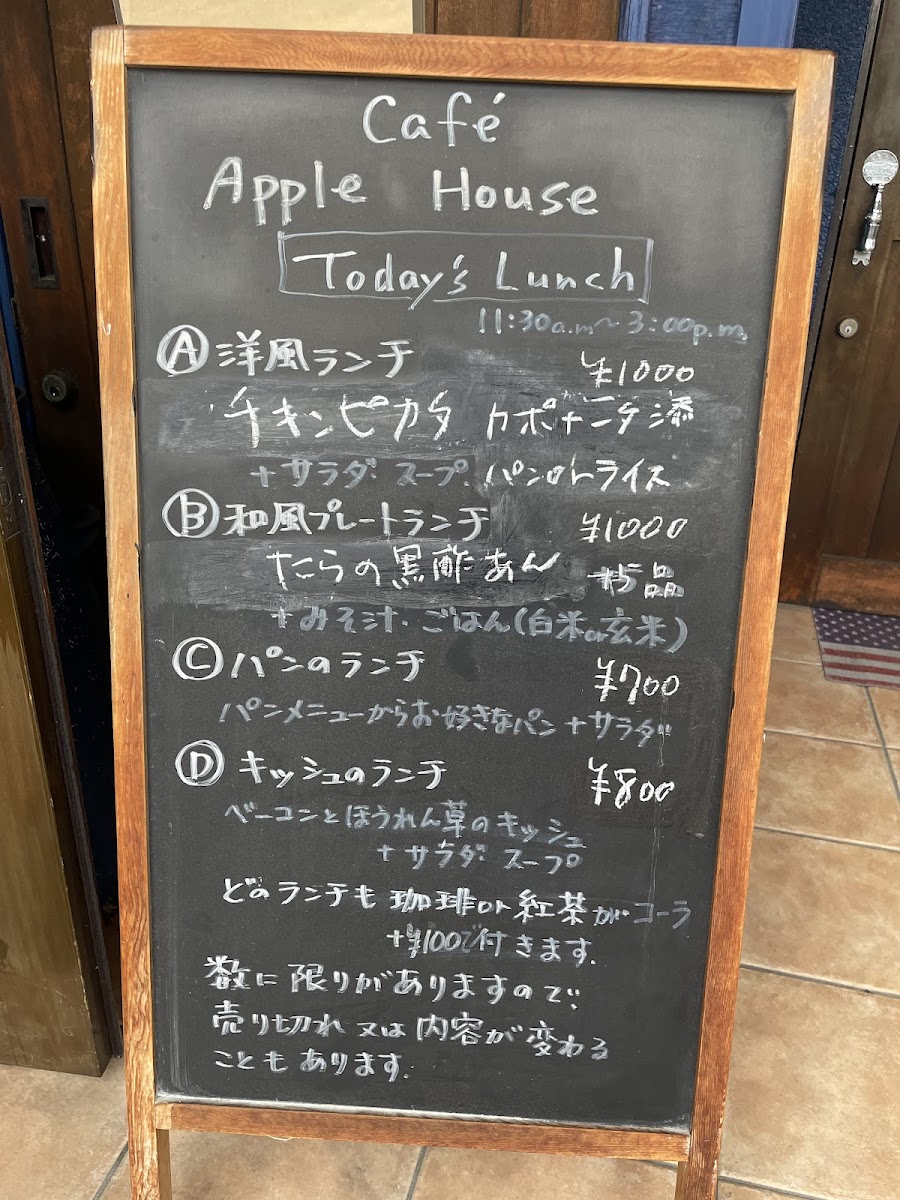 Café
Apple House
Today's Lunch
11:30a.m〜3:00p.m.
Ⓐ洋風ランチ ¥1000
チキンピカタ カポナータ添
+サラダ・スープ・パンorライス
Ⓑ和風プレートランチ ¥1000
たらの黒酢あん +5品
+みそ汁・ごはん(白米or玄米)
Ⓒパンのランチ ¥700
パンメニューからお好きなパン+サラダ
Ⓓキッシュのランチ ¥800
ベーコンとほうれん草のキッシュ
+サラダ・スープ
どのランチも珈琲or紅茶がコーラ
+¥100で付きます.
数に限りがありますので
売り切れ又は内容が変わる
こともあります.